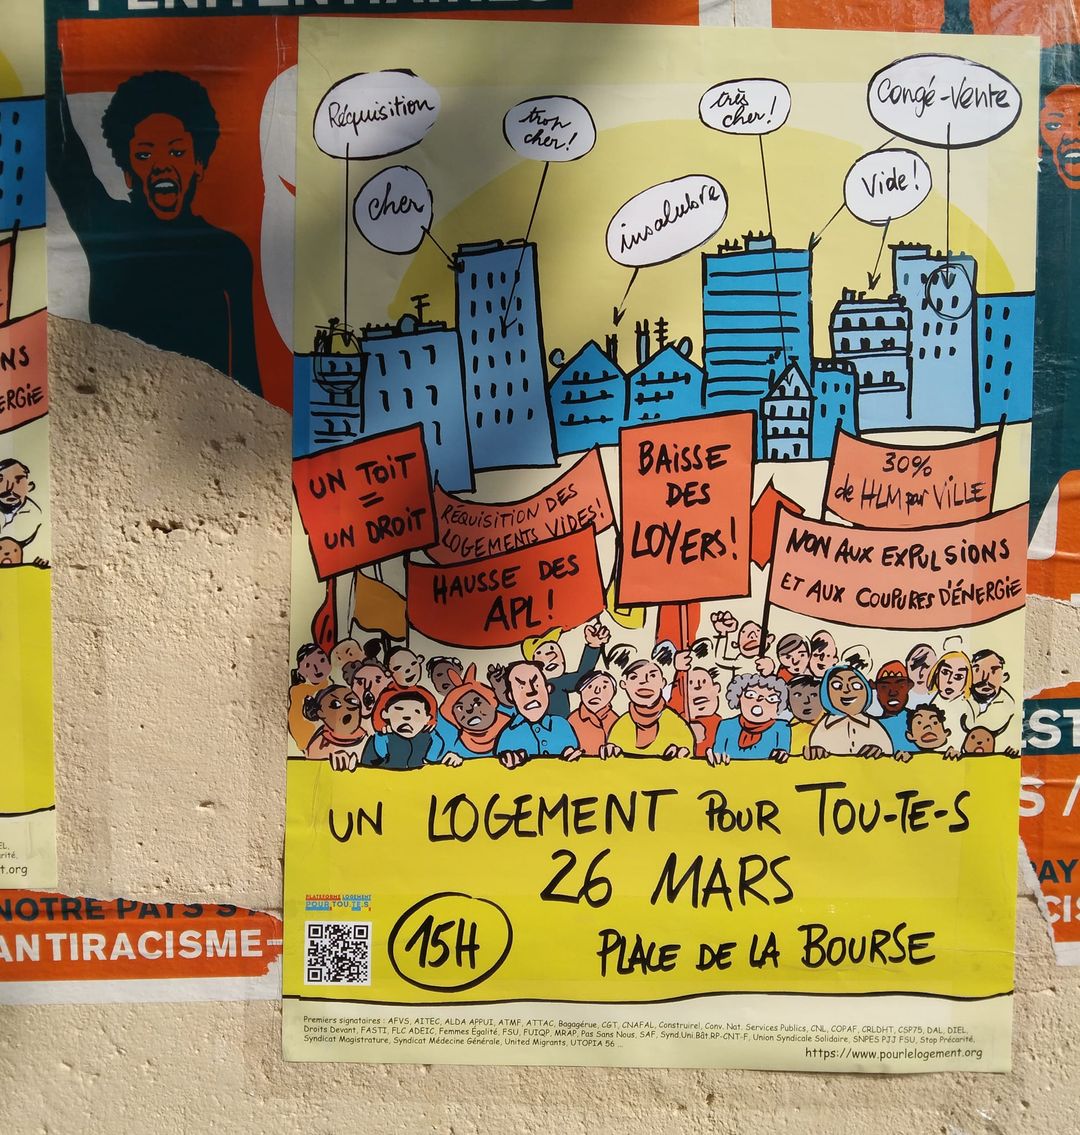 PENITENTIAIRES
Réquisition
trop
cher!
très
cher!
Congé-Vente
cher
insalubre
Vide!
UN TOIT
=
UN DROIT
RÉQUISITION DES
LOGEMENTS VIDES!
HAUSSE DES
APL!
BAISSE
DES
LOYERS!
30%
de HLM par VILLE
NON AUX EXPULSIONS
ET AUX COUPURES D'ÉNERGIE
NS
ERGIE
UN LOGEMENT POUR TOU-TE-S
26 MARS
15H
PLACE DE LA BOURSE
PLATEFORME LOGEMENT
POUR TOU.TE.S
Premiers signataires : AFVS, AITEC, ALDA APPUI, ATMF, ATTAC, Bagagérue, CGT, CNAFAL, Construirel, Conv. Nat. Services Publics, CNL, COPAF, CRLDHT, CSP75, DAL, DIEL,
Droits Devant, FASTI, FLC ADEIC, Femmes Égalité, FSU, FUIQP, MRAP, Pas Sans Nous, SAF, Synd.Uni.Bât.RP-CNT-F, Union Syndicale Solidaire, SNPES PJJ FSU, Stop Précarité,
Syndicat Magistrature, Syndicat Médecine Générale, United Migrants, UTOPIA 56 ...
https://www.pourlelogement.org
EL,
arité,
t.org
NOTRE PAYS S'A
ANTIRACISME-
EST
S /
PAY
CIS